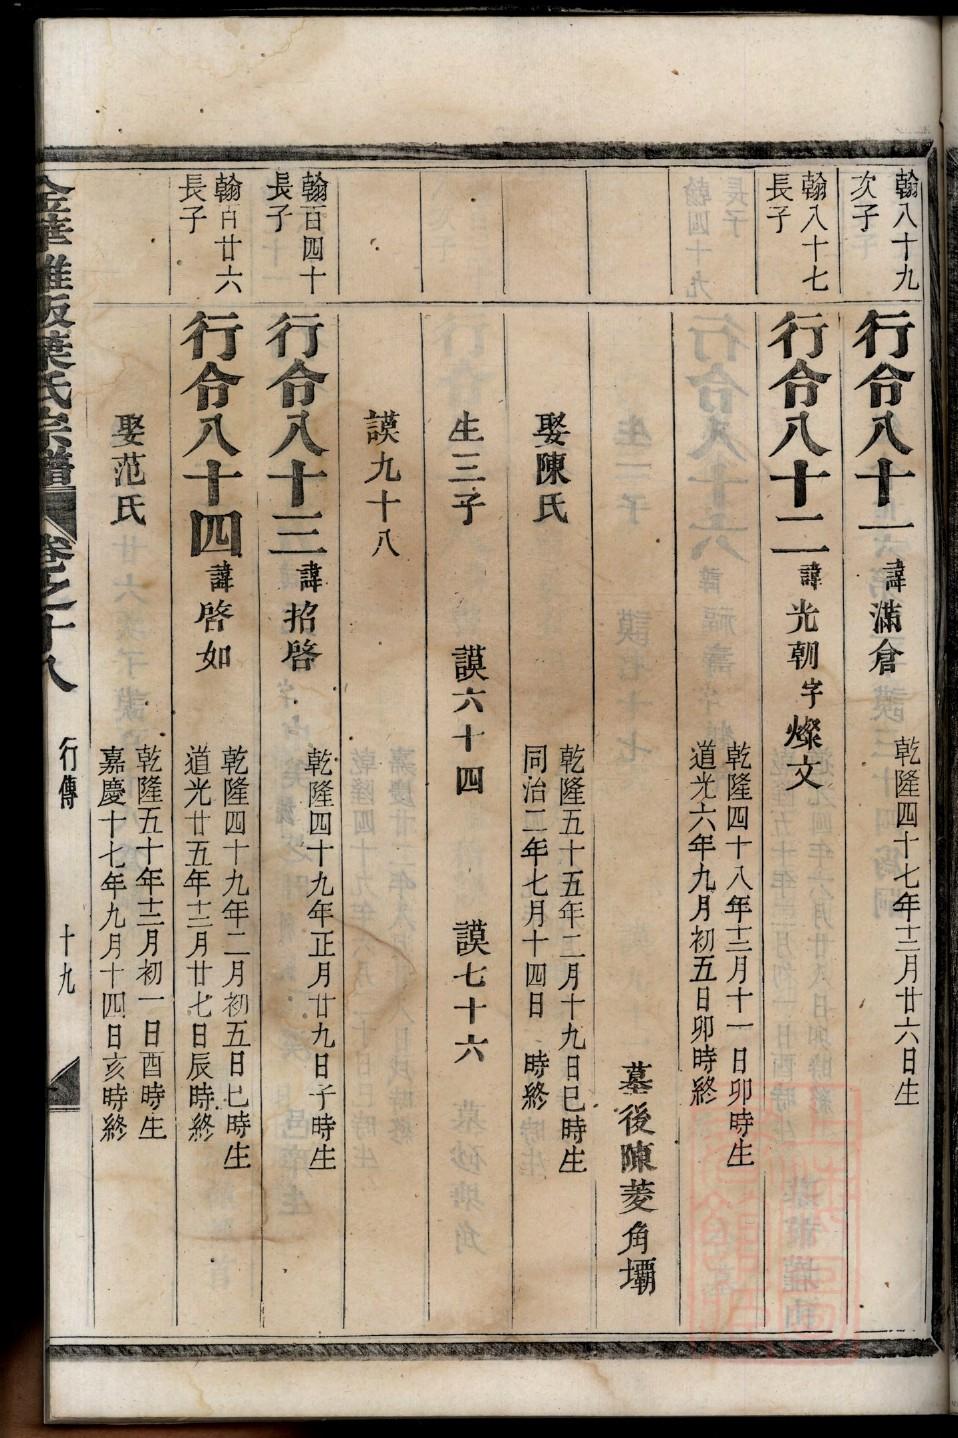 翰八十九
次子
行令八十一 諱滿倉
乾隆四十七年十二月廿六日生
翰八十七
長子
行令八十二 諱光朝 字燦文
乾隆四十八年十二月十一日卯時生
道光六年九月初五日卯時終
墓後陳菱角壩
娶陳氏
乾隆五十五年二月十九日巳時生
同治二年七月十四日 時終
生三子 謨六十四 謨七十六
謨九十八
翰百四十
長子
行令八十三 諱招啓
乾隆四十九年正月廿九日子時生
翰百廿六
長子
行令八十四 諱啓如
乾隆四十九年二月初五日巳時生
道光廿五年十二月廿七日辰時終
娶范氏
乾隆五十年十二月初一日酉時生
嘉慶十七年九月十四日亥時終
金華雅畈葉氏宗譜 卷之十八 行傳 十九